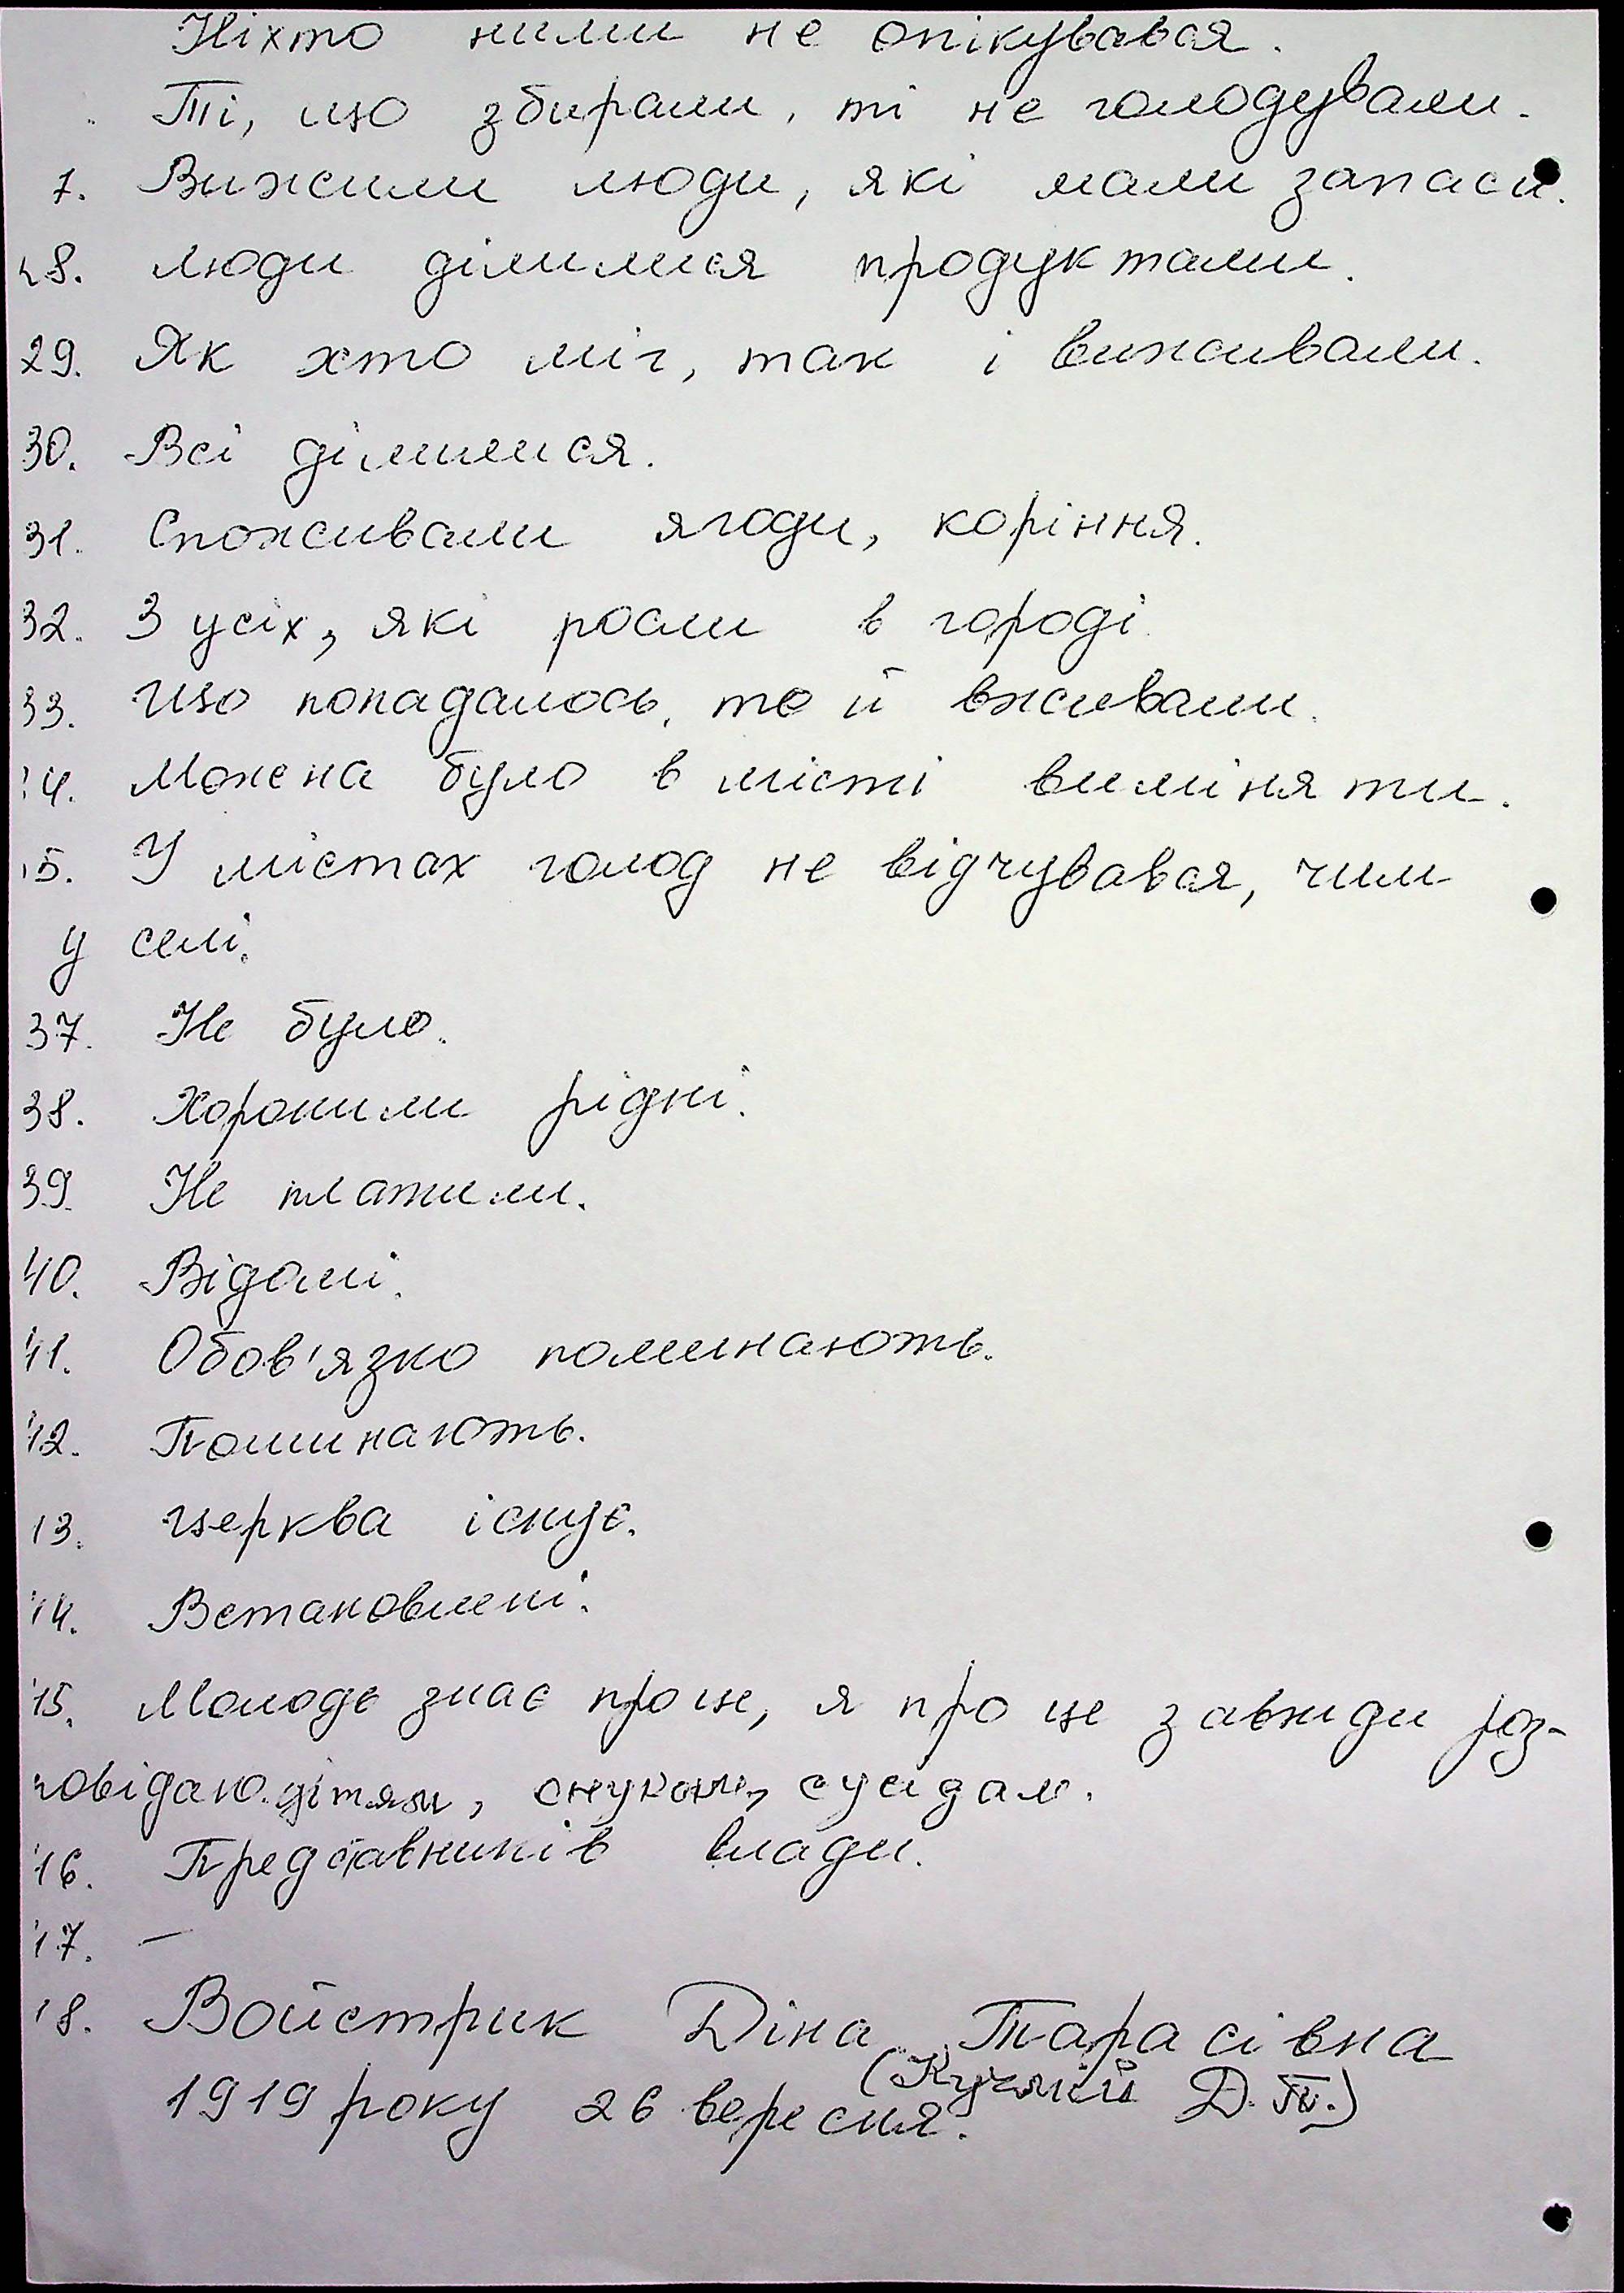 Ніхто ними не опікувався.
. Ті, що збирали, ті не голодували.
7. Вижили люди, які мали запаси.
28. Люди ділилися продуктами.
29. Як хто міг, так і виживали.
30. Всі ділилися.
31. Споживали ягоди, коріння.
32. З усіх, які росли в городі.
33. Що попадалось, те й вживали.
34. Можна було в місті виміняти.
35. У містах голод не відчувався, чим
у селі.
37. Не було.
38. Хоронили рідні.
39. Не платили.
40. Відомі.
41. Обов'язко поминають.
42. Поминають.
43. Церква існує.
44. Встановлені.
45. Молодь знає про це, я про це завжди роз-
повідаю дітям, онукам, сусідам.
46. Представників влади.
47. —
48. Войстрик Діна Тарасівна
Д. Т.)
1919 року 26 вересня.